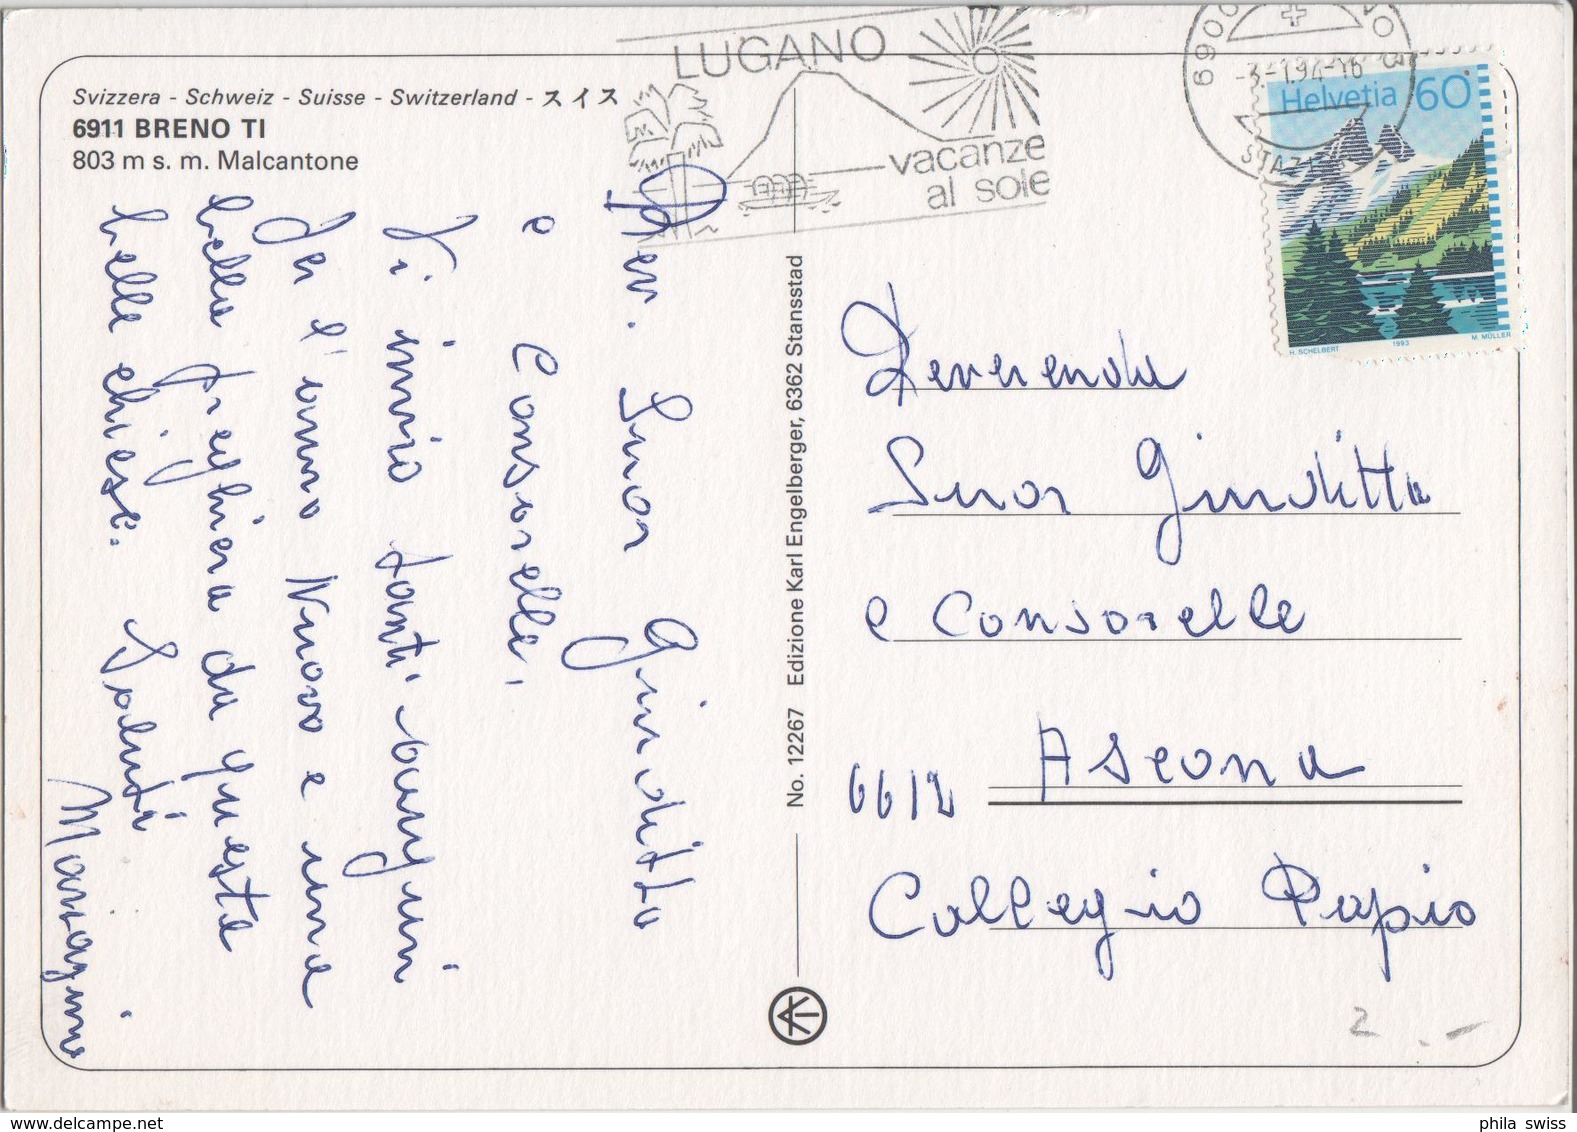 Svizzera - Schweiz - Suisse - Switzerland - スイス
6911 BRENO TI
803 m s. m. Malcantone
LUGANO
vacanze
al sole
6900
-3-1.94-16
STAZI
Helvetia 60
H. SCHELBERT 1993 M. MÜLLER
Rev. Suor Giuditta
e Consorelle,
Vi invio tanti auguri
per l'anno Nuovo e una
bella preghiera da queste
belle chiese.
Saluti
Edizione Karl Engelberger, 6362 Stansstad
No. 12267
Reverenda
Suor Giuditta
e Consorelle
6612 Ascona
Collegio Papio
2.-
phila swiss
www.delcampe.net